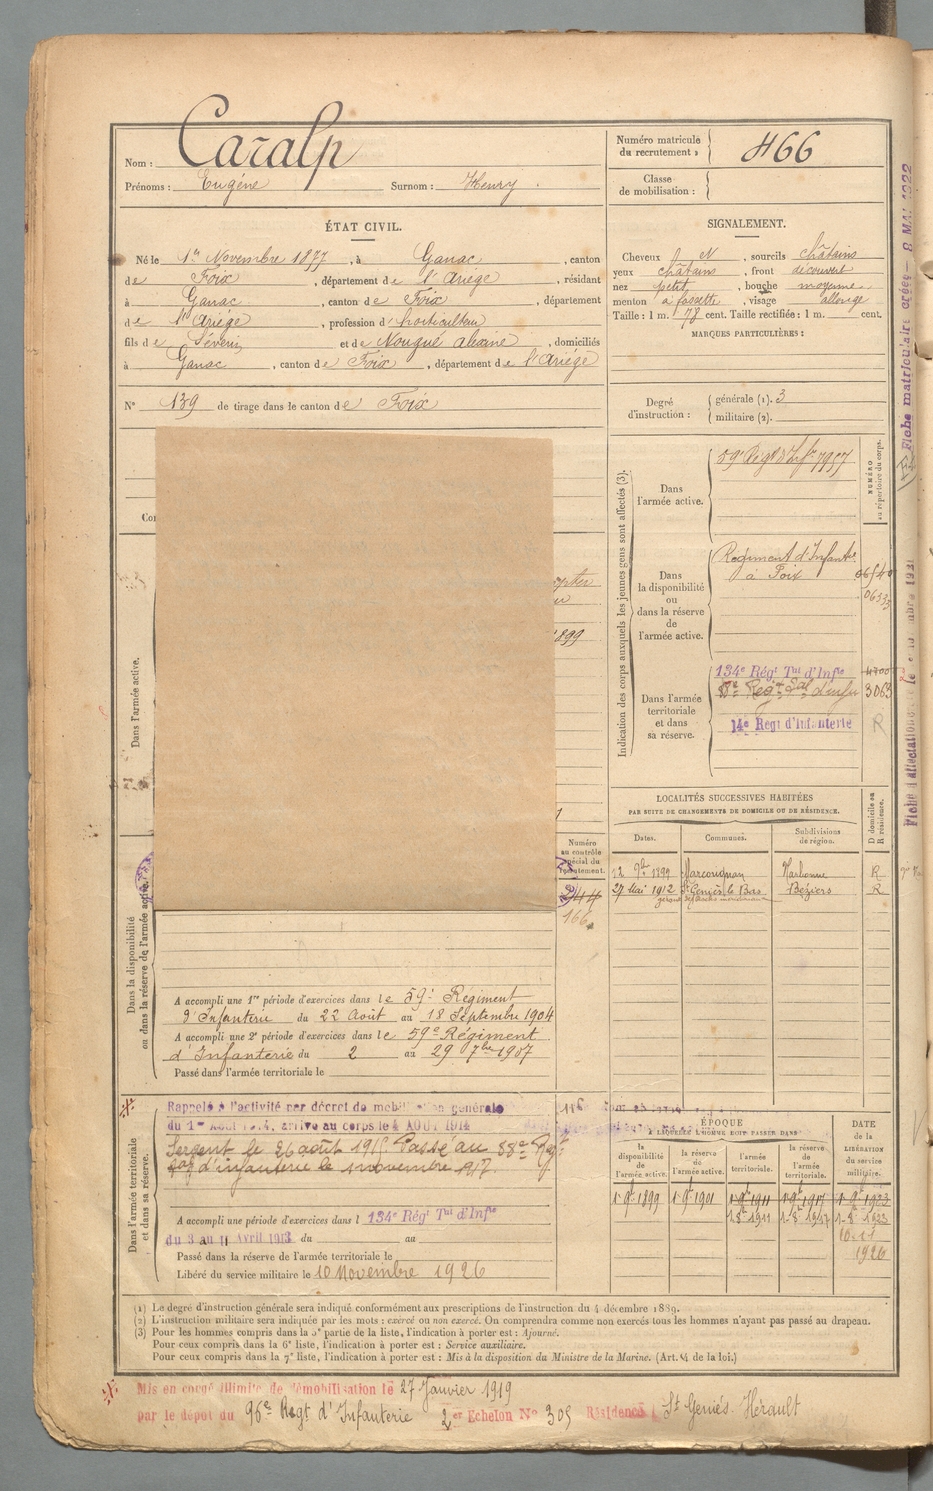 Nom : Caralp
Prénoms : Eugène Surnom : Henry.
Numéro matricule du recrutement : 466
Classe de mobilisation :
ÉTAT CIVIL.
Né le 1er Novembre 1877, à Ganac, canton
de Foix, département de l'Ariège, résidant
à Ganac, canton de Foix, département
de l'Ariège, profession d'horticulteur
fils de Séverin et de Nougué, domiciliés
à Ganac, canton de Foix, département de l'Ariège
N° 139 de tirage dans le canton de Foix
SIGNALEMENT.
Cheveux N, sourcils châtains
yeux châtains, front découvert
nez petit, bouche moyenne
menton à fossette, visage allongé
Taille : 1 m. 78 cent. Taille rectifiée : 1 m. cent.
MARQUES PARTICULIÈRES :
Degré d'instruction :
générale (1). 3
militaire (2).
Indication des corps auxquels les jeunes gens sont affectés (3).
NUMÉRO au répertoire du corps.
Dans l'armée active.
59e Régt d'Infie 7957
Dans la disponibilité ou dans la réserve de l'armée active.
Régiment d'Infantie
à Foix
Dans l'armée territoriale et dans sa réserve.
134e Régt Tal d'Infie
4700
3063
14e Régt d'Infanterie
R
opter
1899
Dans l'armée active.
Numéro au contrôle spécial du recrutement.
166
LOCALITÉS SUCCESSIVES HABITÉES
PAR SUITE DE CHANGEMENTS DE DOMICILE OU DE RÉSIDENCE.
Dates. Communes. Subdivisions de région. D domicile ou R résidence.
12 9bre 1899 Marcorignan Narbonne R
27 Mai 1912 St Geniès le Bas Béziers R
Dans la disponibilité ou dans la réserve de l'armée active.
A accompli une 1re période d'exercices dans le 59e Régiment
d'Infanterie du 22 Août au 18 Septembre 1904
A accompli une 2e période d'exercices dans le 59e Régiment
d'Infanterie du 2 au 29 7bre 1907
Passé dans l'armée territoriale le
Dans l'armée territoriale et dans sa réserve.
Rappelé à l'activité par décret de mobilisation générale
du 1er Août 1914, arrivé au corps le 4 AOUT 1914
Sergent le 26 août 1915 Passé au 88e Rgt
d'infanterie le 1 novembre 1917.
A accompli une période d'exercices dans l 134e Régt Tal d'Infie
du 3 au 11 Avril 1913 du au
Passé dans la réserve de l'armée territoriale le
Libéré du service militaire le 10 Novembre 1926
ÉPOQUE
À LAQUELLE L'HOMME DOIT PASSER DANS
la disponibilité de l'armée active. la réserve de l'armée active. l'armée territoriale. la réserve de l'armée territoriale. DATE de la LIBÉRATION du service militaire.
1 9bre 1899 1 9bre 1901 1 9bre 1911 1 9bre 1917 1 9bre 1923
10-11
1926
(1) Le degré d'instruction générale sera indiqué conformément aux prescriptions de l'instruction du 4 décembre 1889.
(2) L'instruction militaire sera indiquée par les mots : exercé ou non exercé. On comprendra comme non exercés tous les hommes n'ayant pas passé au drapeau.
(3) Pour les hommes compris dans la 5e partie de la liste, l'indication à porter est : Ajourné.
Pour ceux compris dans la 6e liste, l'indication à porter est : Service auxiliaire.
Pour ceux compris dans la 7e liste, l'indication à porter est : Mis à la disposition du Ministre de la Marine. (Art. 4 de la loi.)
Mis en congé illimité de démobilisation le 27 Janvier 1919
par le dépôt du 96e Regt d'Infanterie 2er Echelon N° 305 Résidence St Geniès Hérault
Fiche matriculaire créée 8 MAI 1922